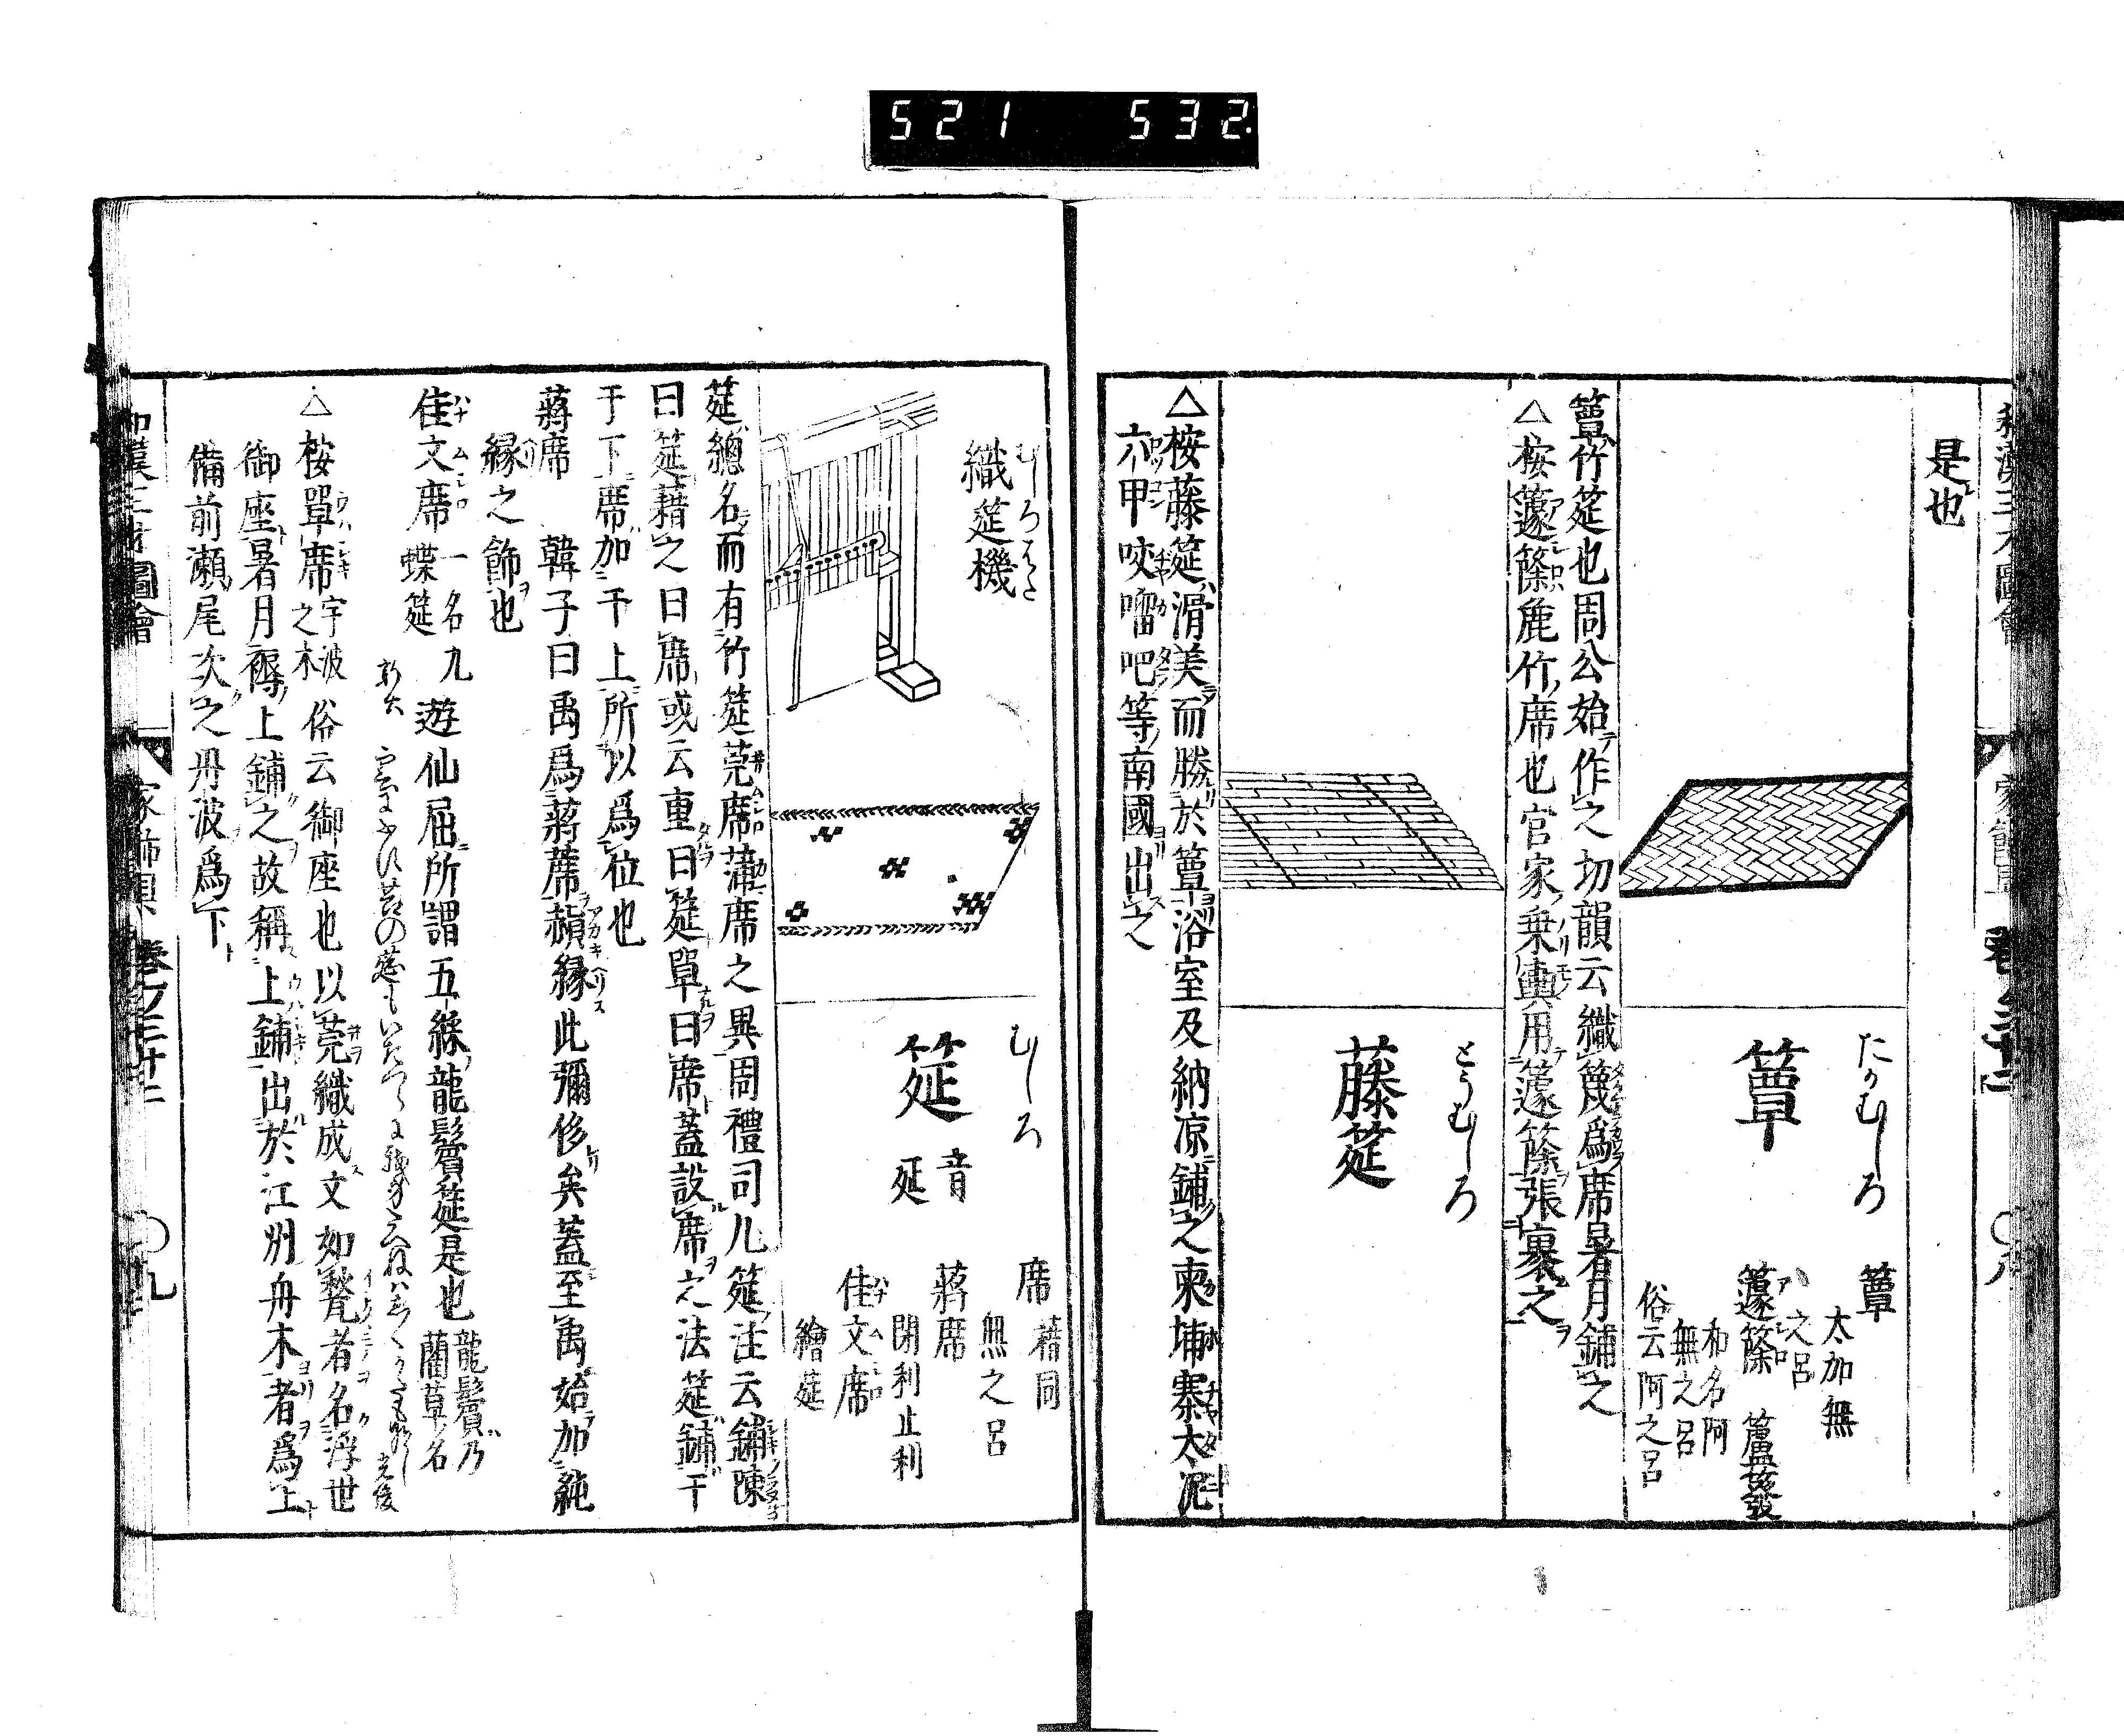 521 532.
是也
たかむしろ
簟
簟
太加無
之呂
籧篨 籚䕠
和名阿
無之呂
俗云阿之呂
簟竹筵也周公始作之切韻云織篾爲席暑月鋪之
△按籧篨麁竹席也官家乗輿用籧篨張裹之
とうむしろ
藤筵
△按藤筵滑美而勝於簟浴室及納涼鋪之柬埔寨太泥
六甲咬𠺕吧等南國出之
むしろはた
織筵機
むしろ
筵
音
延
席 藉同
無之呂
蔣席
閉利止利
佳文席
繪筵
筵總名而有竹筵莞席蒲席之異周禮司几筵注云鋪陳
曰筵藉之曰席或云重曰筵單曰席蓋設席之法筵鋪于
于下席加于上所以爲位也
蔣席 韓子曰禹爲蔣蓆頳縁此彌侈矣蓋至禹始加純
縁之飾也
佳文席 一名九
蝶筵
遊仙屈所謂五綵龍鬢筵是也
龍鬢乃
藺草名
△按單席 宇波
之木
俗云御座也以莞織成文如甃者名浮世
御座暑月褥上鋪之故稱上鋪出於江州舟木者爲上
備前瀬尾次之丹波爲下
和漢三才圖會
家飾具 卷之三十二
〇九